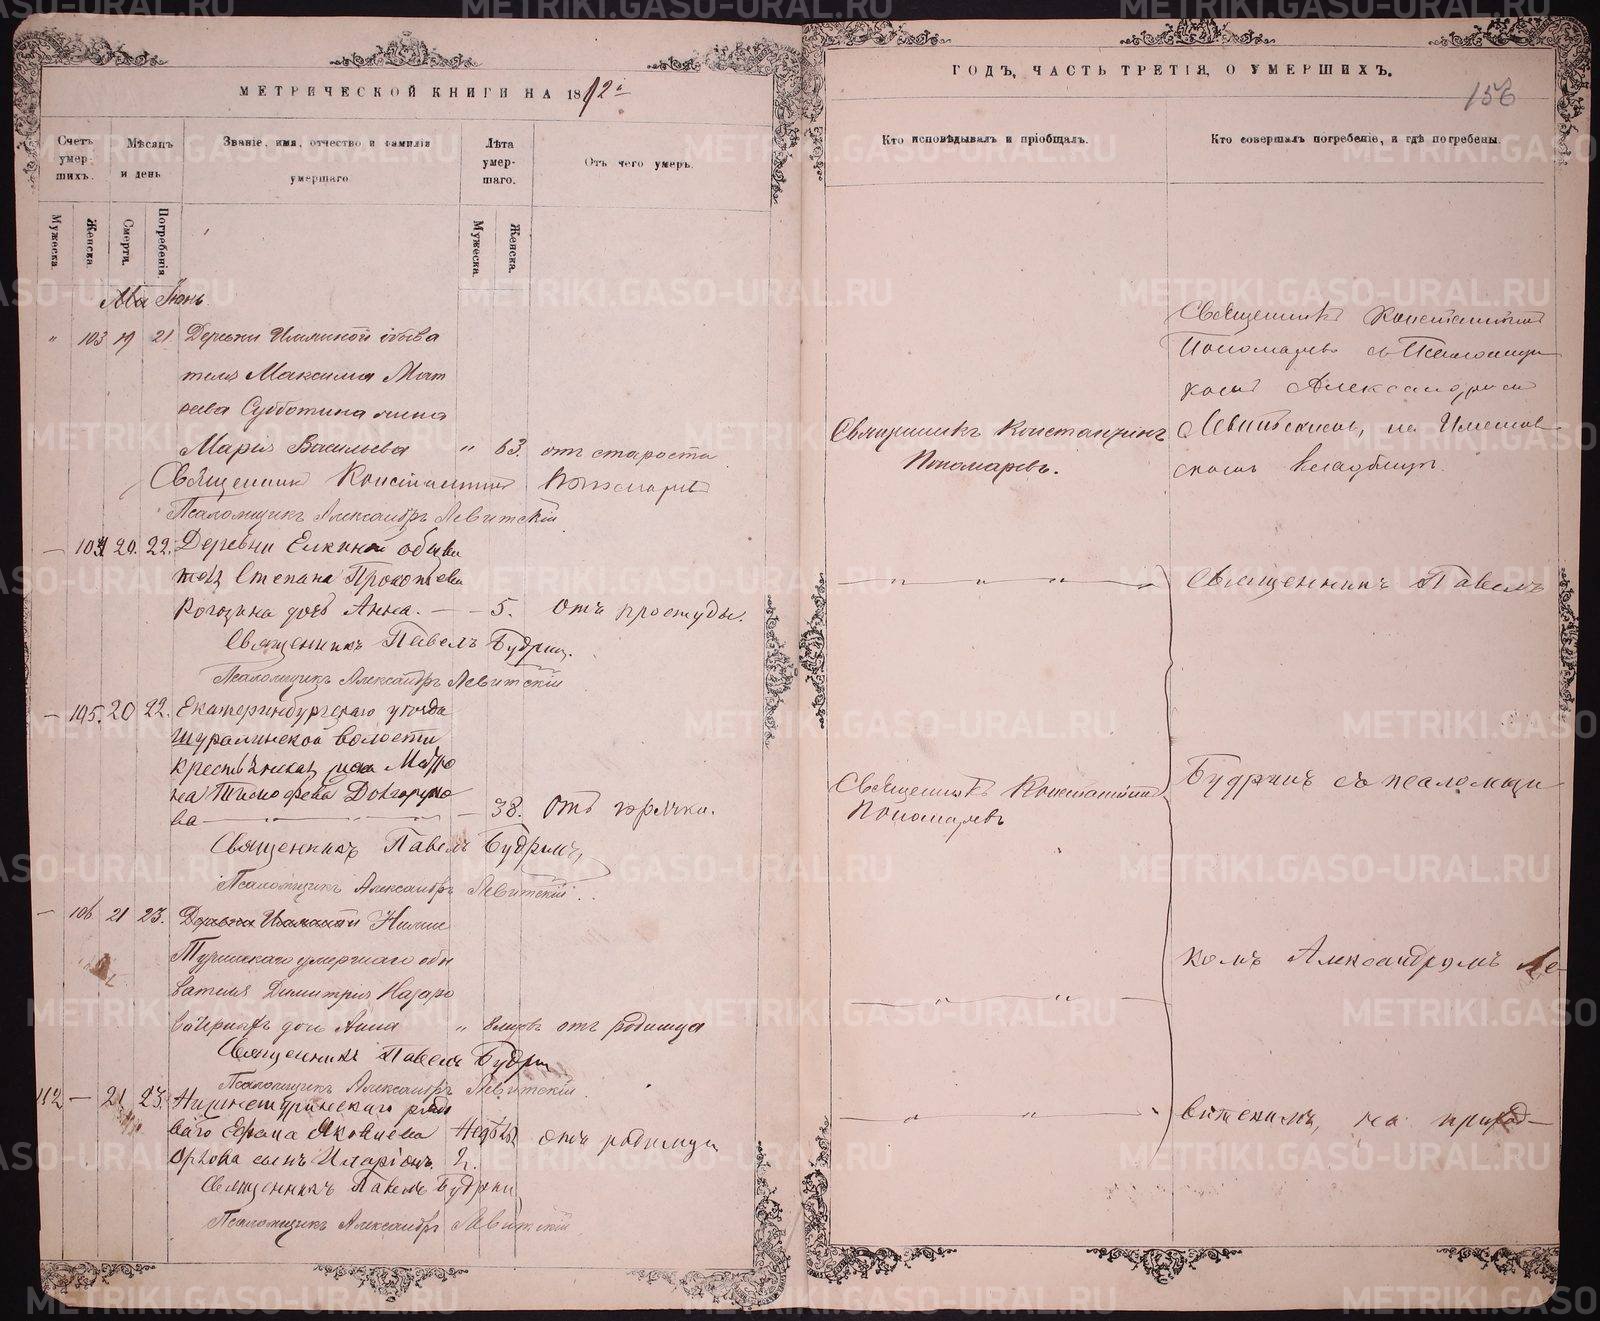 МЕТРИЧЕСКОЙ КНИГИ НА 18
Счетъ умершихъ.
Мѣсяцъ и день
Званіе, имя, отчество и фамилія умершаго
Лѣта умершаго.
Отъ чего умеръ.
Мужеска.
Женска.
Смерти.
Погребенія.
Мужеска.
Женска.
Іюнь
" 103 19 21 Деревни
Максима
Субботина жена
Марія Васильева " 63. отъ старости
Священник Константин Пономарев
Псаломщикъ Александръ Левитскій
20. 22. Деревни Елкиной обыва
Степана Прокопьева
Рогозина дочь Анна. — 5. Отъ простуды.
Священникъ Павелъ Будрин.
Псаломщикъ Александръ Левитскій
— 105. 20 22. Екатеринбургскаго уѣзда
Шуралинской волости
Матро
на Тимофеева Долгоруко
ва — 38. Отъ горячки.
Священникъ Павелъ Будринъ,
Псаломщикъ Александръ Левитскій
— 106 21 23. Нижне
Туринскаго умершаго обы
вателя Димитрія Назаро
дочь Анна " отъ родимца
Священникъ Павелъ Будрин
Псаломщикъ Александръ Левитскій
112 — 21 23. Нижнетуринскаго
Яковлева отъ родимца
Орлова сынъ Иларіонъ. 2.
Священникъ Павелъ Будрин
Псаломщикъ Александръ Левитскій
ГОДЪ, ЧАСТЬ ТРЕТІЯ, О УМЕРШИХЪ.
156
Кто исповѣдывалъ и пріобщалъ.
Кто совершалъ погребеніе, и гдѣ погребены.
Священникъ Константинъ
Пономаревъ.
Священникъ Константинъ
Пономаревъ съ Псаломщи
комъ Александромъ
Левитскимъ, на
скомъ кладбищѣ.
— " " " —
Священникъ Павелъ
Священникъ Константинъ
Пономаревъ
Будринъ съ псаломщи
— " " —
комъ Александромъ Ле-
— " " —
витскимъ, на приход-
METRIKI.GASO-URAL.RU